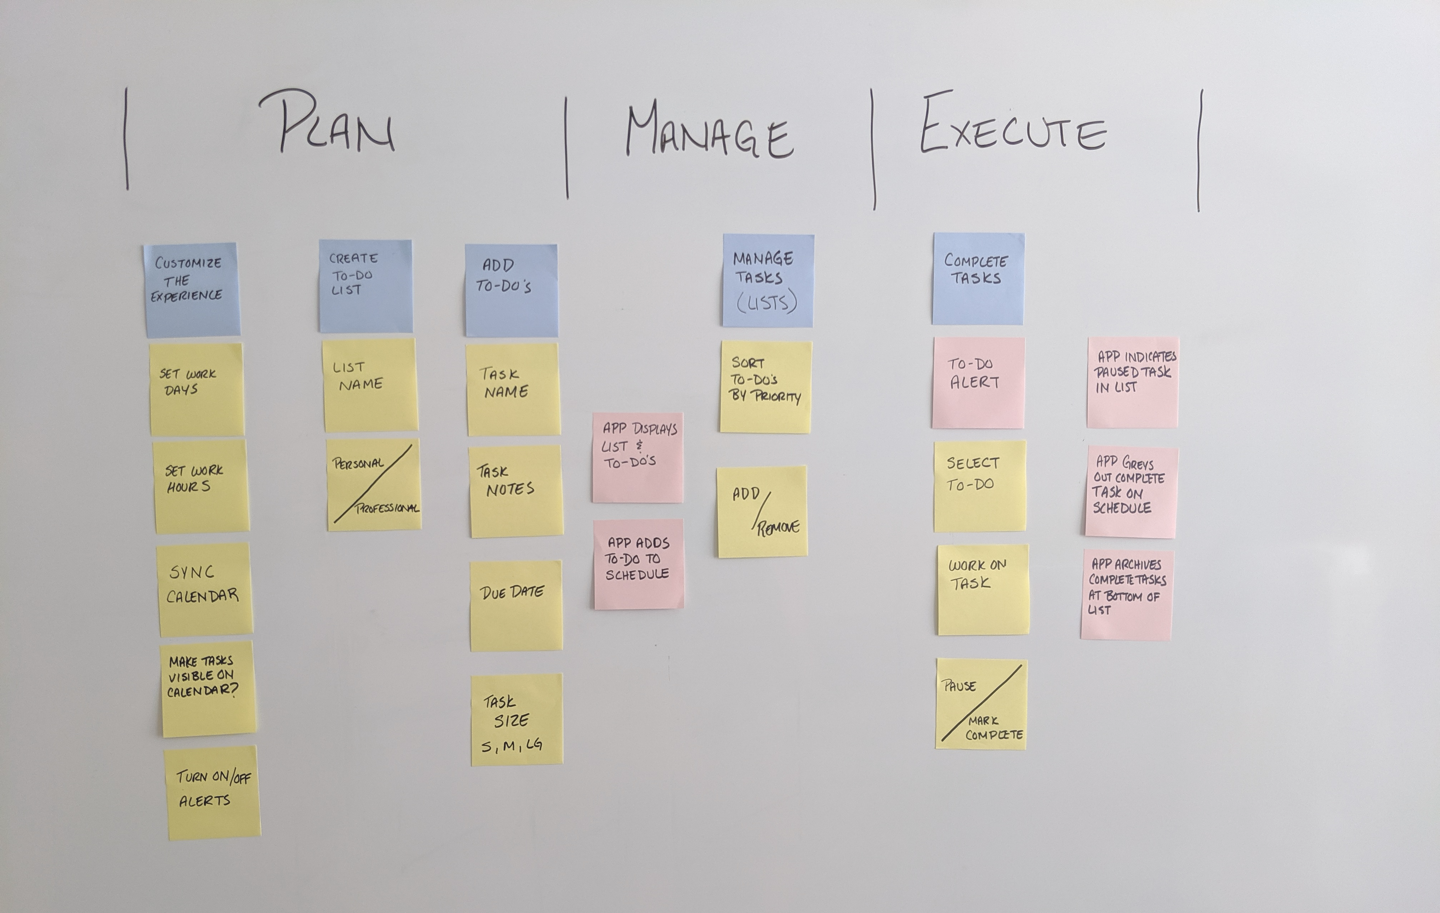 PLAN
MANAGE
EXECUTE
CUSTOMIZE
THE
EXPERIENCE
SET WORK
DAYS
SET WORK
HOURS
SYNC
CALENDAR
MAKE TASKS
VISIBLE ON
CALENDAR?
TURN ON/OFF
ALERTS
CREATE
TO-DO
LIST
LIST
NAME
PERSONAL /
PROFESSIONAL
ADD
TO-DO's
TASK
NAME
TASK
NOTES
DUE DATE
TASK
SIZE
S, M, LG
APP DISPLAYS
LIST &
TO-DO'S
APP ADDS
TO-DO TO
SCHEDULE
MANAGE
TASKS
(LISTS)
SORT
TO-DO's
BY PRIORITY
ADD /
REMOVE
COMPLETE
TASKS
TO-DO
ALERT
SELECT
TO-DO
WORK ON
TASK
PAUSE /
MARK
COMPLETE
APP INDICATES
PAUSED TASK
IN LIST
APP GREYS
OUT COMPLETE
TASK ON
SCHEDULE
APP ARCHIVES
COMPLETE TASKS
AT BOTTOM OF
LIST